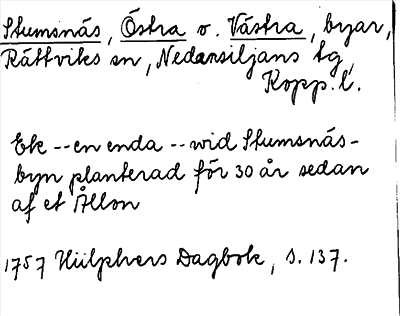 Stumsnäs, Östra o. Västra, byar,
Rättviks sn, Nedansiljans tg,
Kopp. l.
Ek -- en enda -- wid Stumsnäs-
byn planterad för 30 år sedan
af et Ållon
1757 Hülphers Dagbok, s. 137.